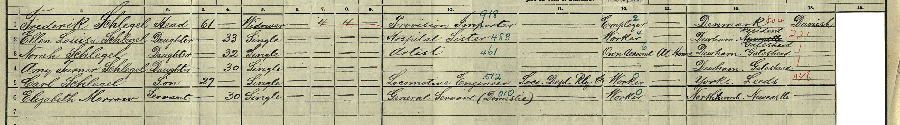 Frederick Schlegel Head 61 Widower 4 4 — Provision Importer Employer Denmark Danish
Ellen Louisa Schlegel Daughter 33 Single Hospital Sister Worker Durham Gateshead
Norah Schlegel Daughter 32 Single Artist 461 Own account At Home Durham Gateshead
Schlegel Daughter 30 Single Durham Gateshead
Carl Schlegel Son 27 Single Locomotive Engineer Loco. Dept. Worker Yorks Leeds
Elizabeth Servant 30 Single General Servant (Domestic) Worker Northumb. Newcastle